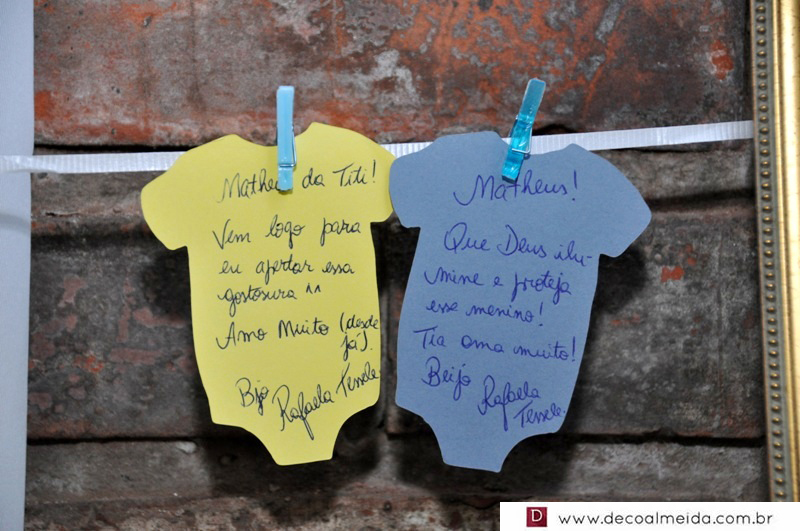 Matheus da Titi!
Vem logo para
eu apertar essa
gostosura ^^
Amo Muito (desde
já).
Bjo
Rafaela Tessele
Matheus!
Que Deus ilu-
mine e proteja
esse menino!
Tia ama muito!
Beijo
Rafaela
Tessele.
D www.decoalmeida.com.br